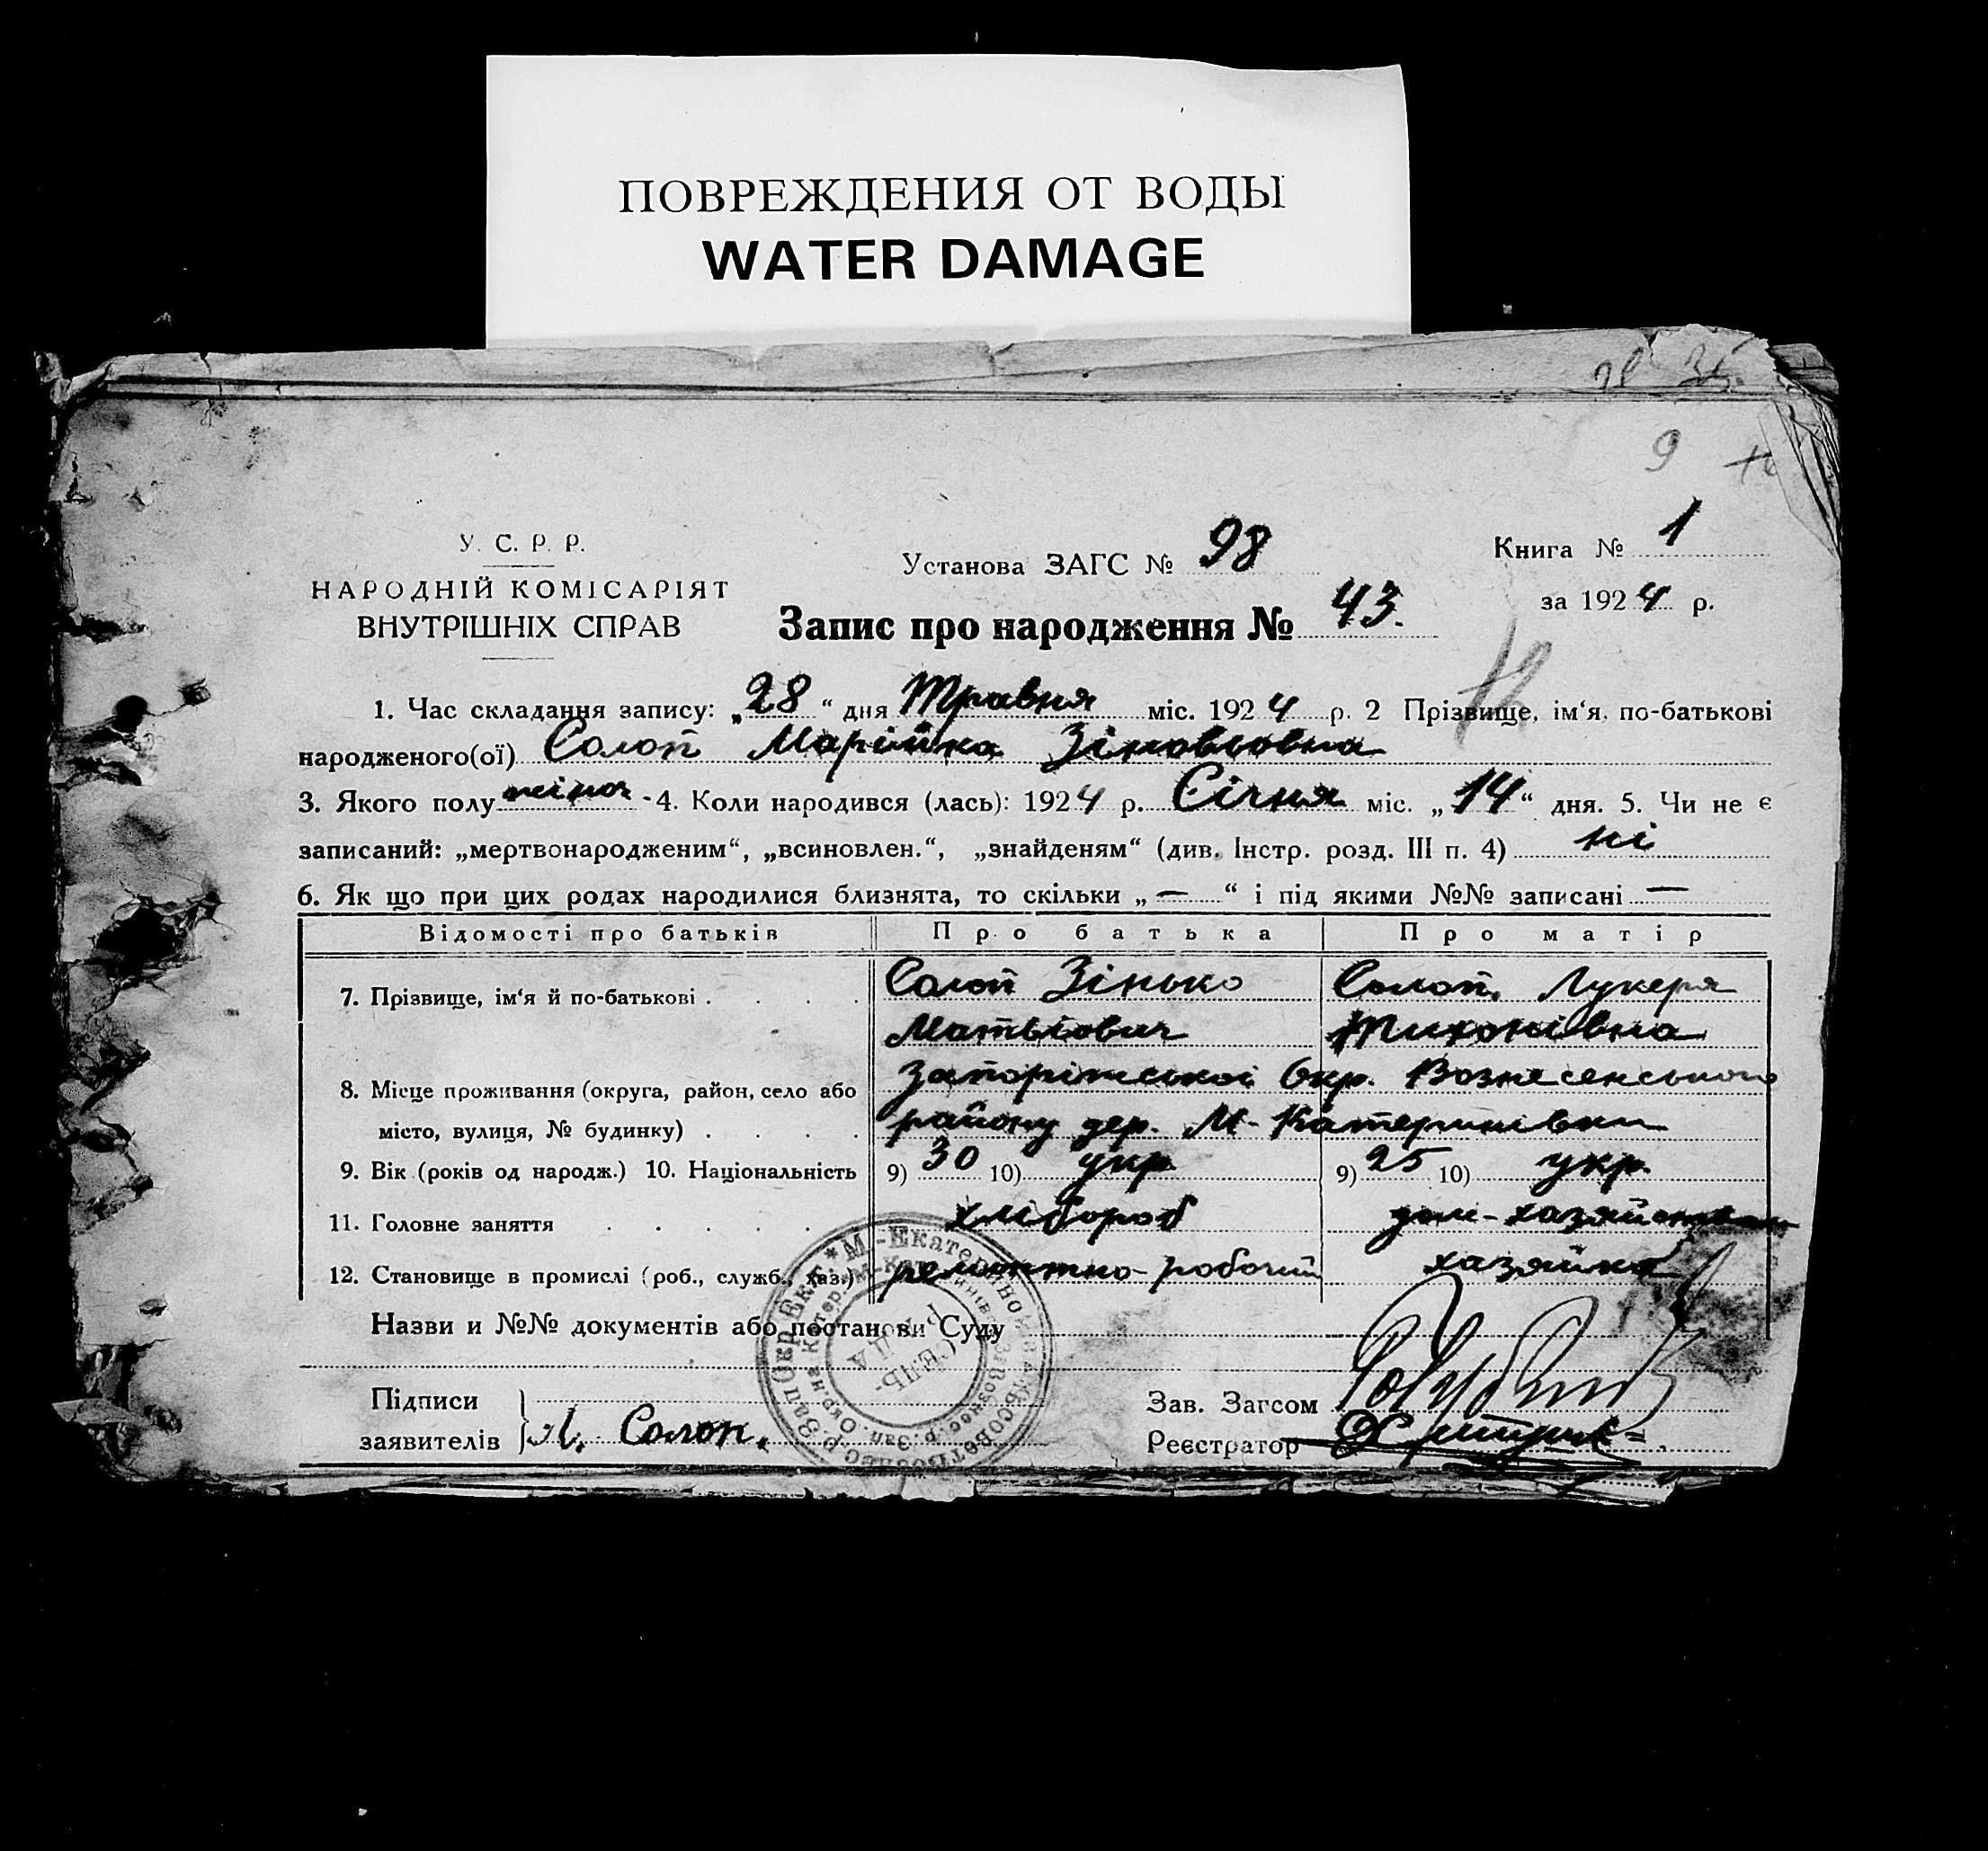 ПОВРЕЖДЕНИЯ ОТ ВОДЫ
WATER DAMAGE
9
У. С. Р. Р.
НАРОДНІЙ КОМІСАРІЯТ
ВНУТРІШНІХ СПРАВ
Установа ЗАГС № 98
Книга № 1
за 1924 р.
Запис про народження № 43.
1. Час складання запису: „28“ дня Травня міс. 1924 р. 2 Прізвище, ім‘я, по-батькові
народженого(ої) Солоп Марійка Зіновьовна
3. Якого полу жіноч -4. Коли народився (лась): 1924 р. Січня міс. „14“ дня. 5. Чи не є
записаний: „мертвонародженим“, „всиновлен.“, „знайденям“ (див. Інстр. розд. III п. 4) ні
6. Як що при цих родах народилися близнята, то скільки „—“ і під якими №№ записані —
Відомості про батьків Про батька Про матір
7. Прізвище, ім‘я й по-батькові . . . . Солоп Зінько Солоп, Лукеря
Матьвіович Тихонівна
8. Місце проживання (округа, район, село або Запоріжської Окр. Вознесенського
місто, вулиця, № будинку) . . . . району дер. М-Катеринівки
9. Вік (років од народж.) 10. Національність 9) 30 10) укр. 9) 25 10) укр.
11. Головне заняття . . . . . хлібороб дом-хазяйственн
12. Становище в промислі (роб., служб., хаз.) ремонтно-робочий хазяйка
Назви и №№ документів або постанови Суду
Підписи
заявителів } Л. Солоп.
Зав. Загсом
Реєстратор